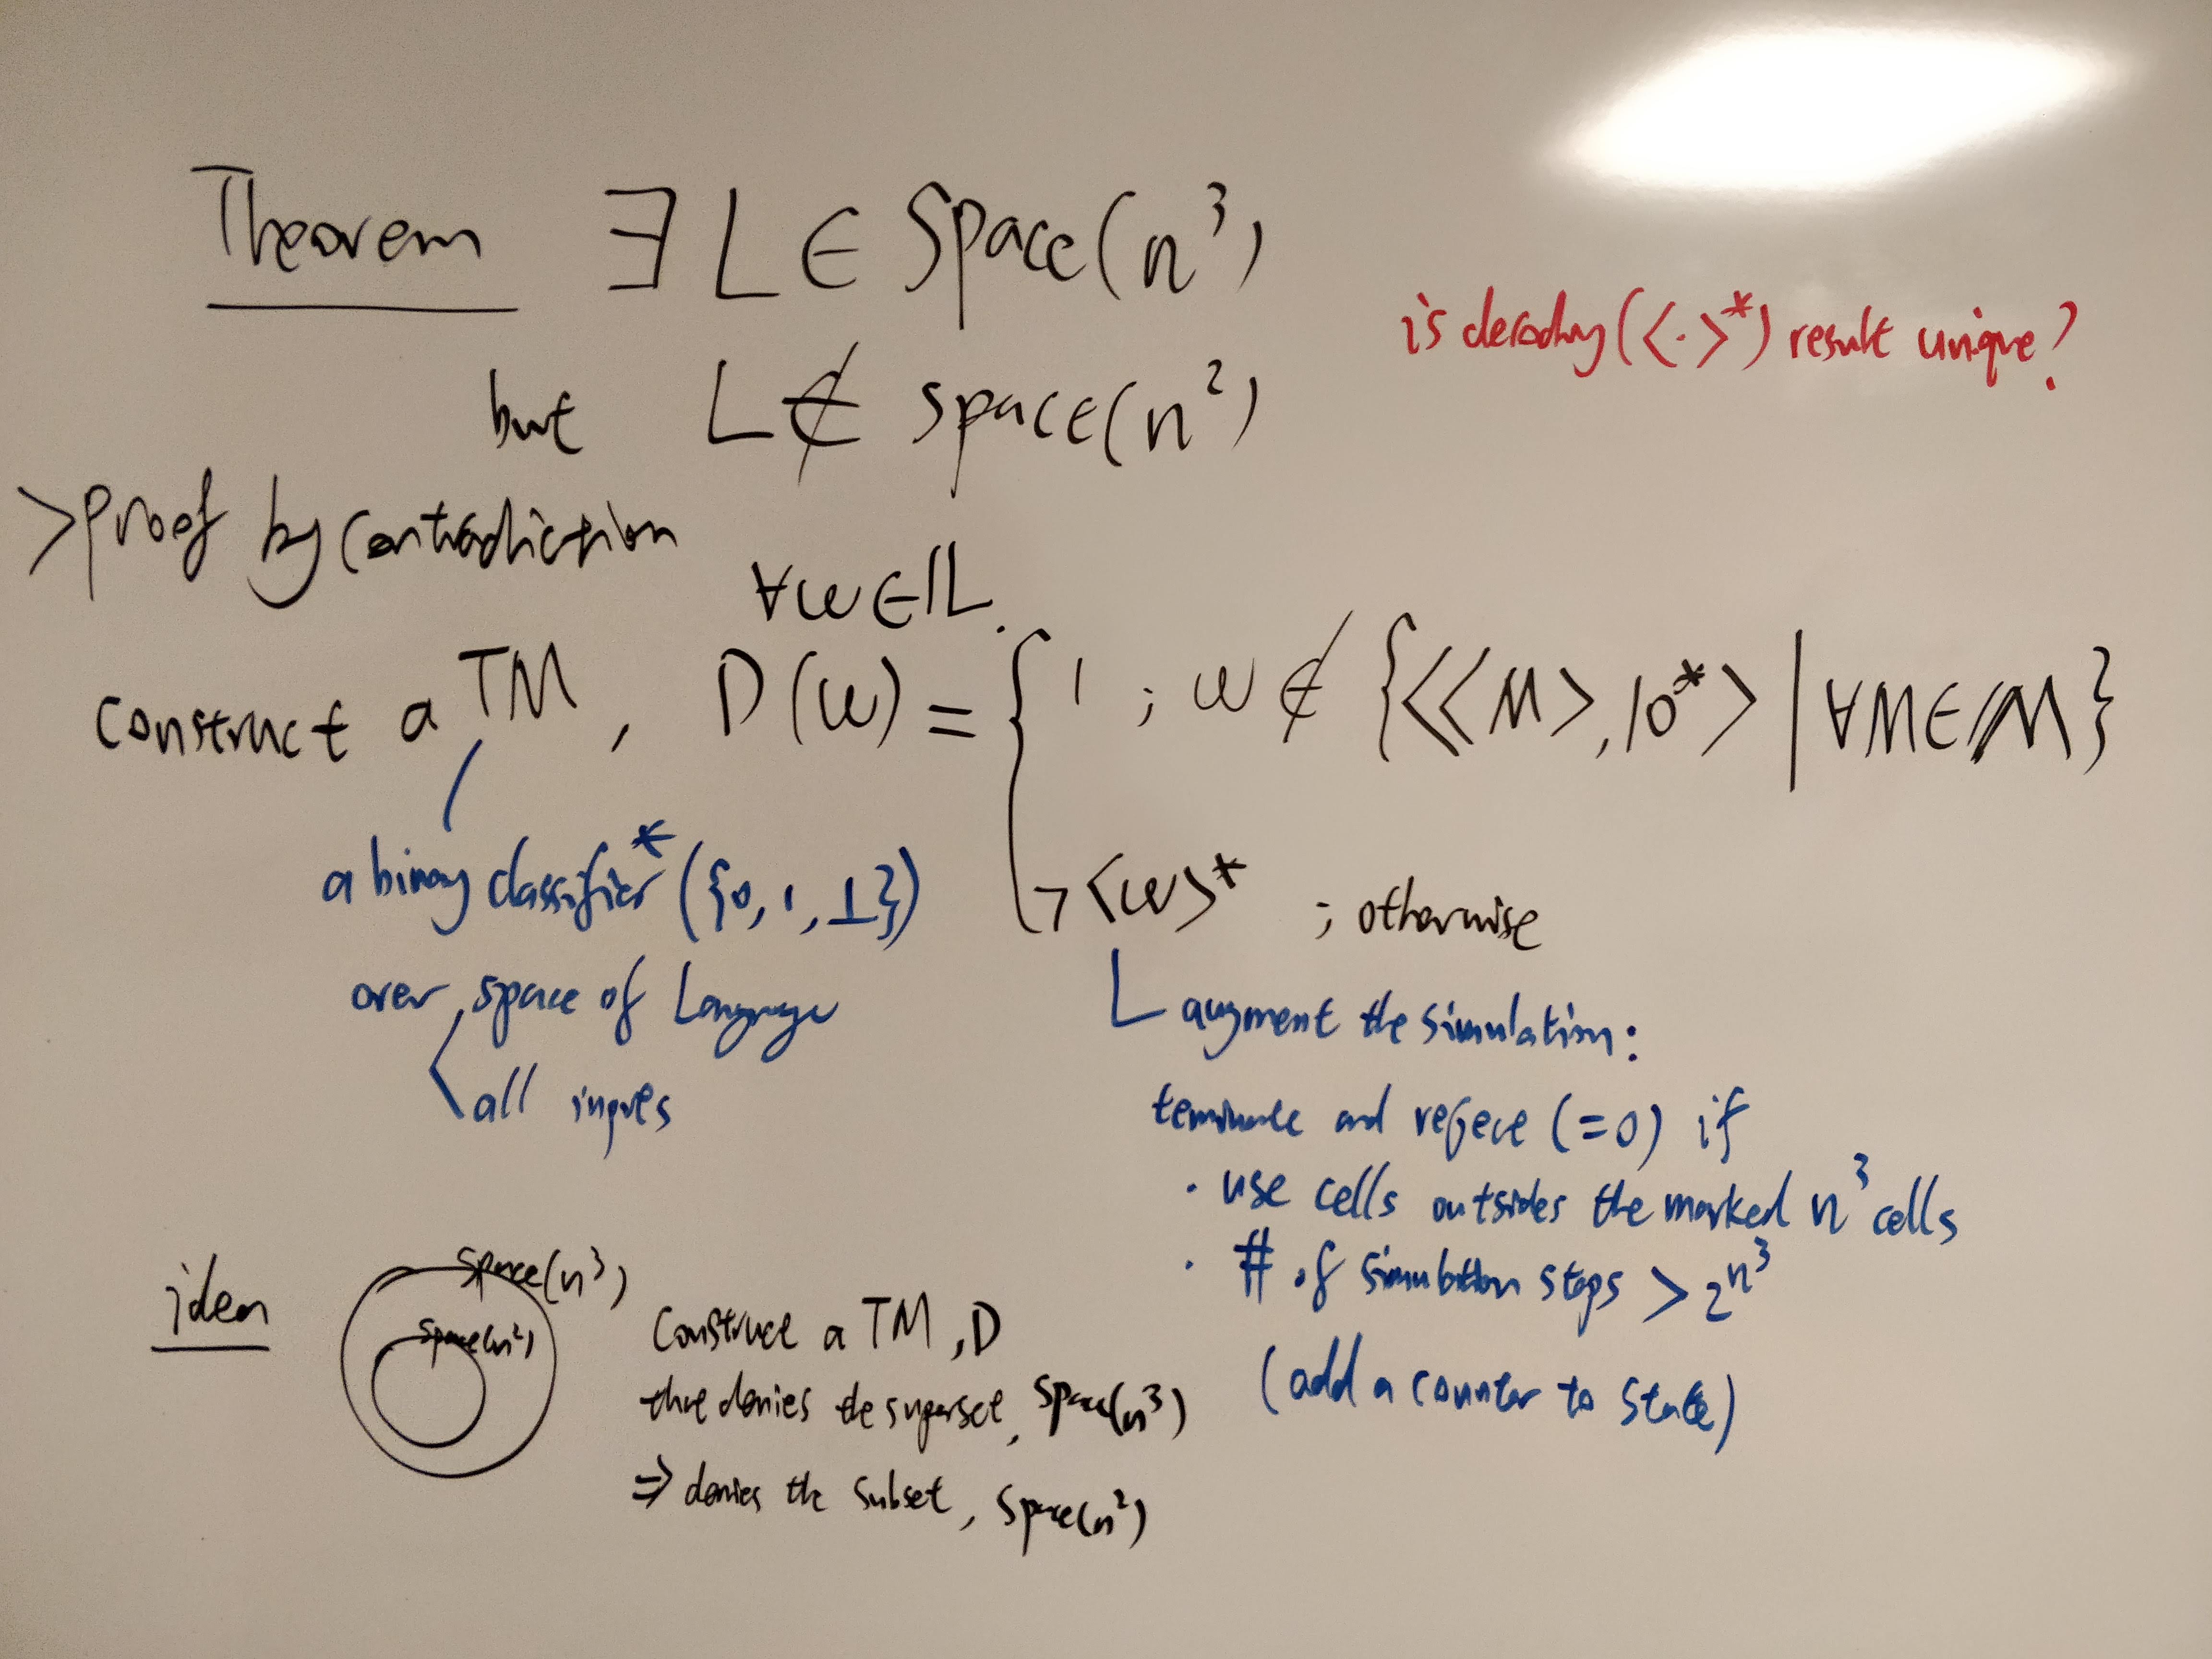 Theorem ∃ L ∈ Space(n³)
but L ∉ space(n²)
is decoding(<·>*) result unique?
>proof by contradiction
∀w∈𝕃.
construct a TM, D(w) = { 1 ; w ∉ {<<M>,10*> | ∀M∈𝕄}
¬<w>* ; otherwise
a binary classifier* ({0, 1, ⊥})
over space of Language
all inputs
augment the simulation:
terminate and reject (=0) if
· use cells outsides the marked n³ cells
· # of simulation steps > 2^n³
(add a counter to state)
idea
Space(n³)
Space(n²)
Construct a TM, D
that denies the superset, Space(n³)
⇒ denies the subset, Space(n²)